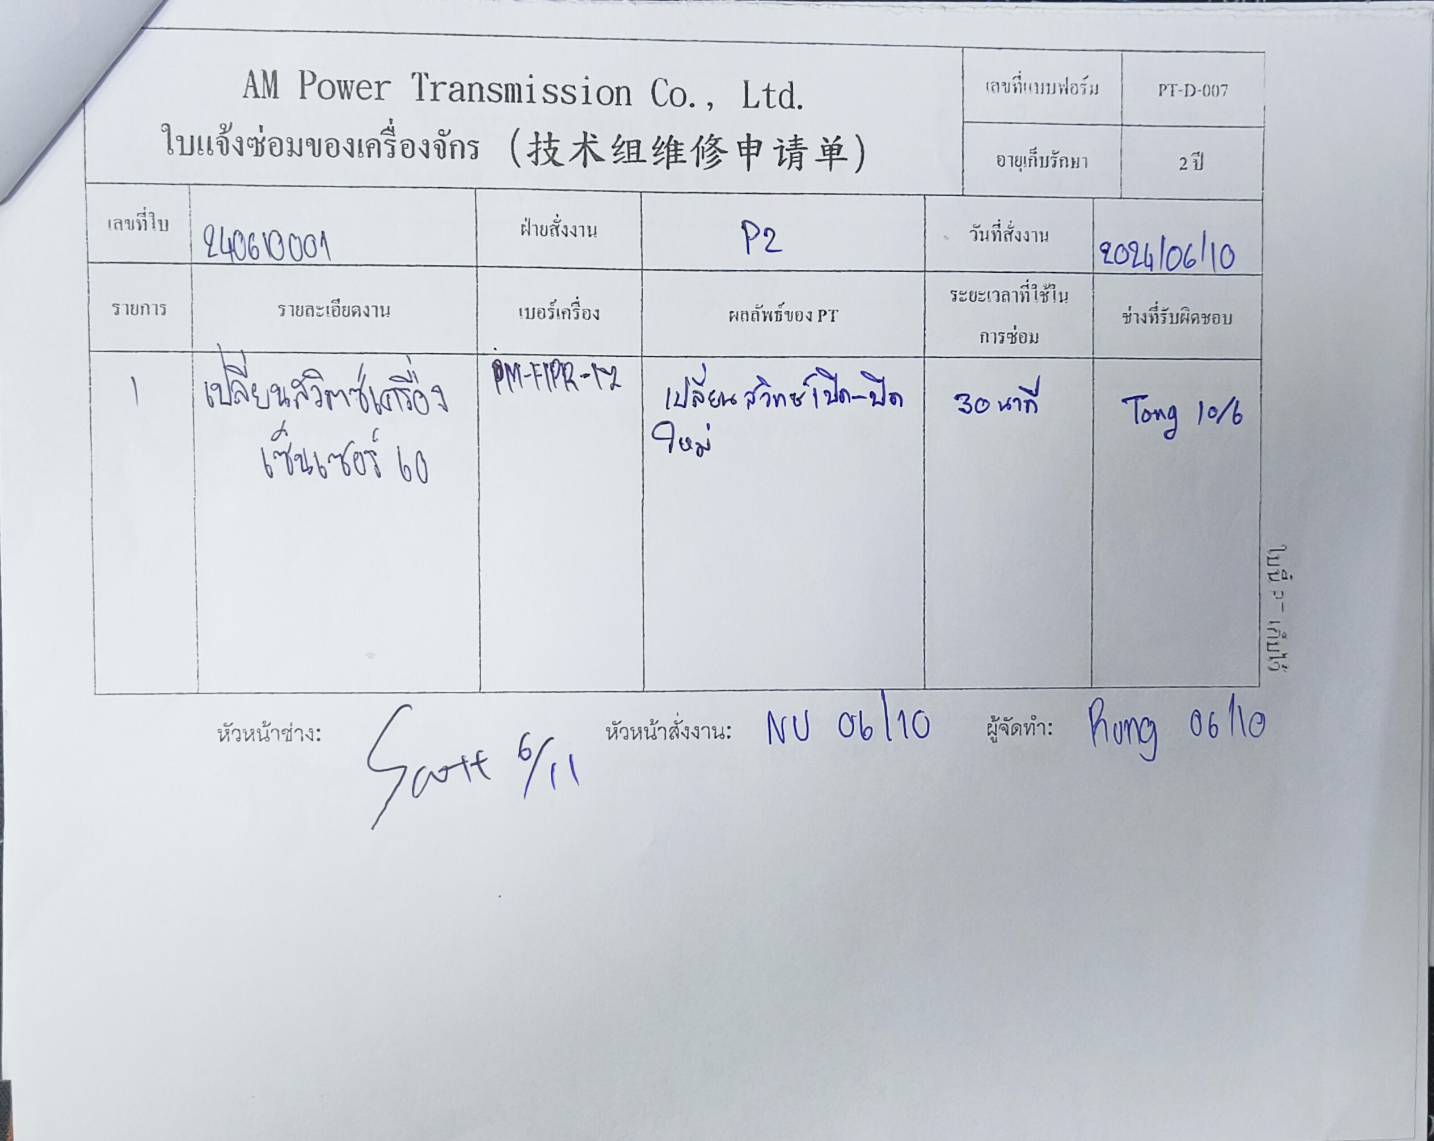 AM Power Transmission Co., Ltd.
ใบแจ้งซ่อมของเครื่องจักร (技术组维修申请单)
เลขที่แบบฟอร์ม PT-D-007
อายุเก็บรักษา 2 ปี
เลขที่ใบ 240610001 ฝ่ายสั่งงาน P2 วันที่สั่งงาน 2024/06/10
รายการ รายละเอียดงาน เบอร์เครื่อง ผลลัพธ์ของ PT ระยะเวลาที่ใช้ใน ช่างที่รับผิดชอบ
การซ่อม
1 เปลี่ยนสวิตซ์เครื่อง เปลี่ยนสวิทซ์เปิด-ปิด 30 นาที Tong 10/6
เซ็นเซอร์ 60 ใหม่
ใบนี้ PT เก็บไว้
หัวหน้าช่าง: Scott 6/11 หัวหน้าสั่งงาน: NU 06/10 ผู้จัดทำ: Rung 06/10